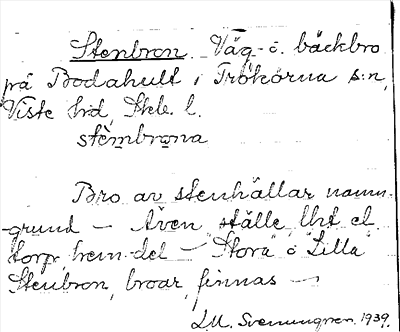 Stenbron. Väg- o. bäckbro
på Bodahult i Trökörna s:n,
Viste hrd, Skbl. l.
stèmbrona
Bro av stenhällar namn-
grund — Även ställe, lht el
torp, hem.del — "Stora" o "Lilla"
Stenbron, broar, finnas —
LM. Svenungsson 1939.